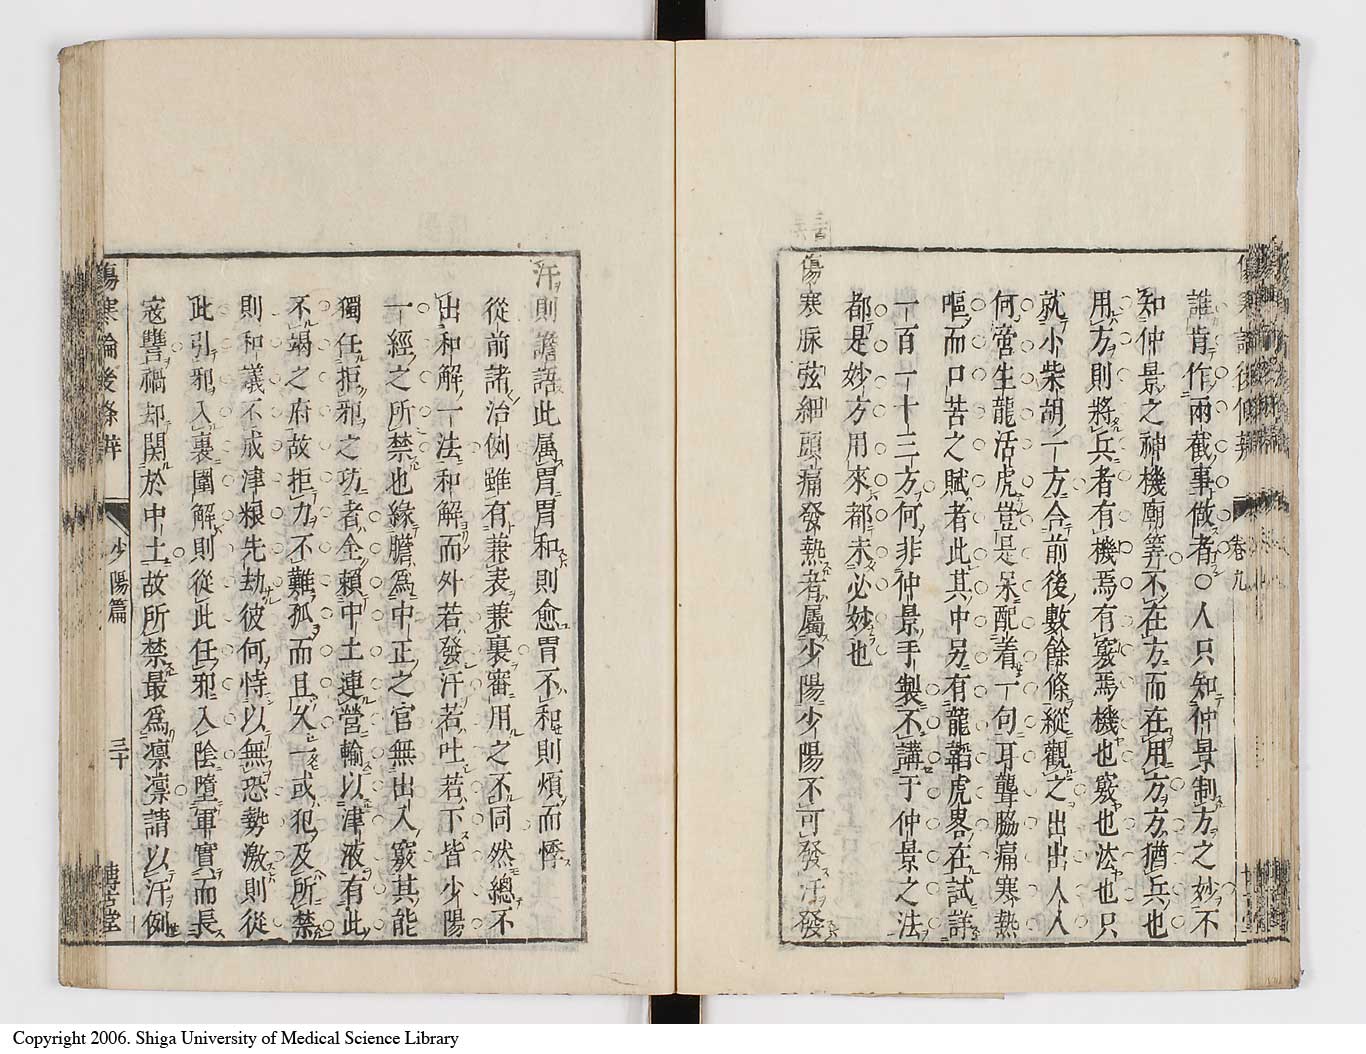 誰肯作兩截事做者○人只知仲景制方之妙不
知仲景之神機廟筭不在方而在用方方猶兵也
用方則將兵者有機焉有竅焉機也竅也法也只
就小柴胡一方合前後數餘條縱觀之出出人人
何啻生龍活虎豈是呆配着一句耳聾脇痛寒熱
嘔而口苦之賦者此其中另有龍韜虎畧在試詳
一百一十三方何非仲景手製不講于仲景之法
都是妙方用來都未必妙也
傷寒脉弦細頭痛發熱者屬少陽少陽不可發汗發
卷九
汗則譫語此属胃胃和則愈胃不和則煩而悸
從前諸治例雖有兼表兼裏審用之不同然總不
出和解一法和解而外若發汗若吐若下皆少陽
一經之所禁也緣膽為中正之官無出入竅其能
獨任拒邪之功者全賴中土連營輸以津液有此
不竭之府故拒力不難孤而且久一或犯及所禁
則和議不成津粮先劫彼何恃以無恐勢激則從
此引邪入裏圍解則從此任邪入陰墮軍實而長
宼讐禍却関於中土故所禁最爲凛凛請以汗例
傷寒論後條辨
少陽篇
三十
博古堂
Copyright 2006. Shiga University of Medical Science Library